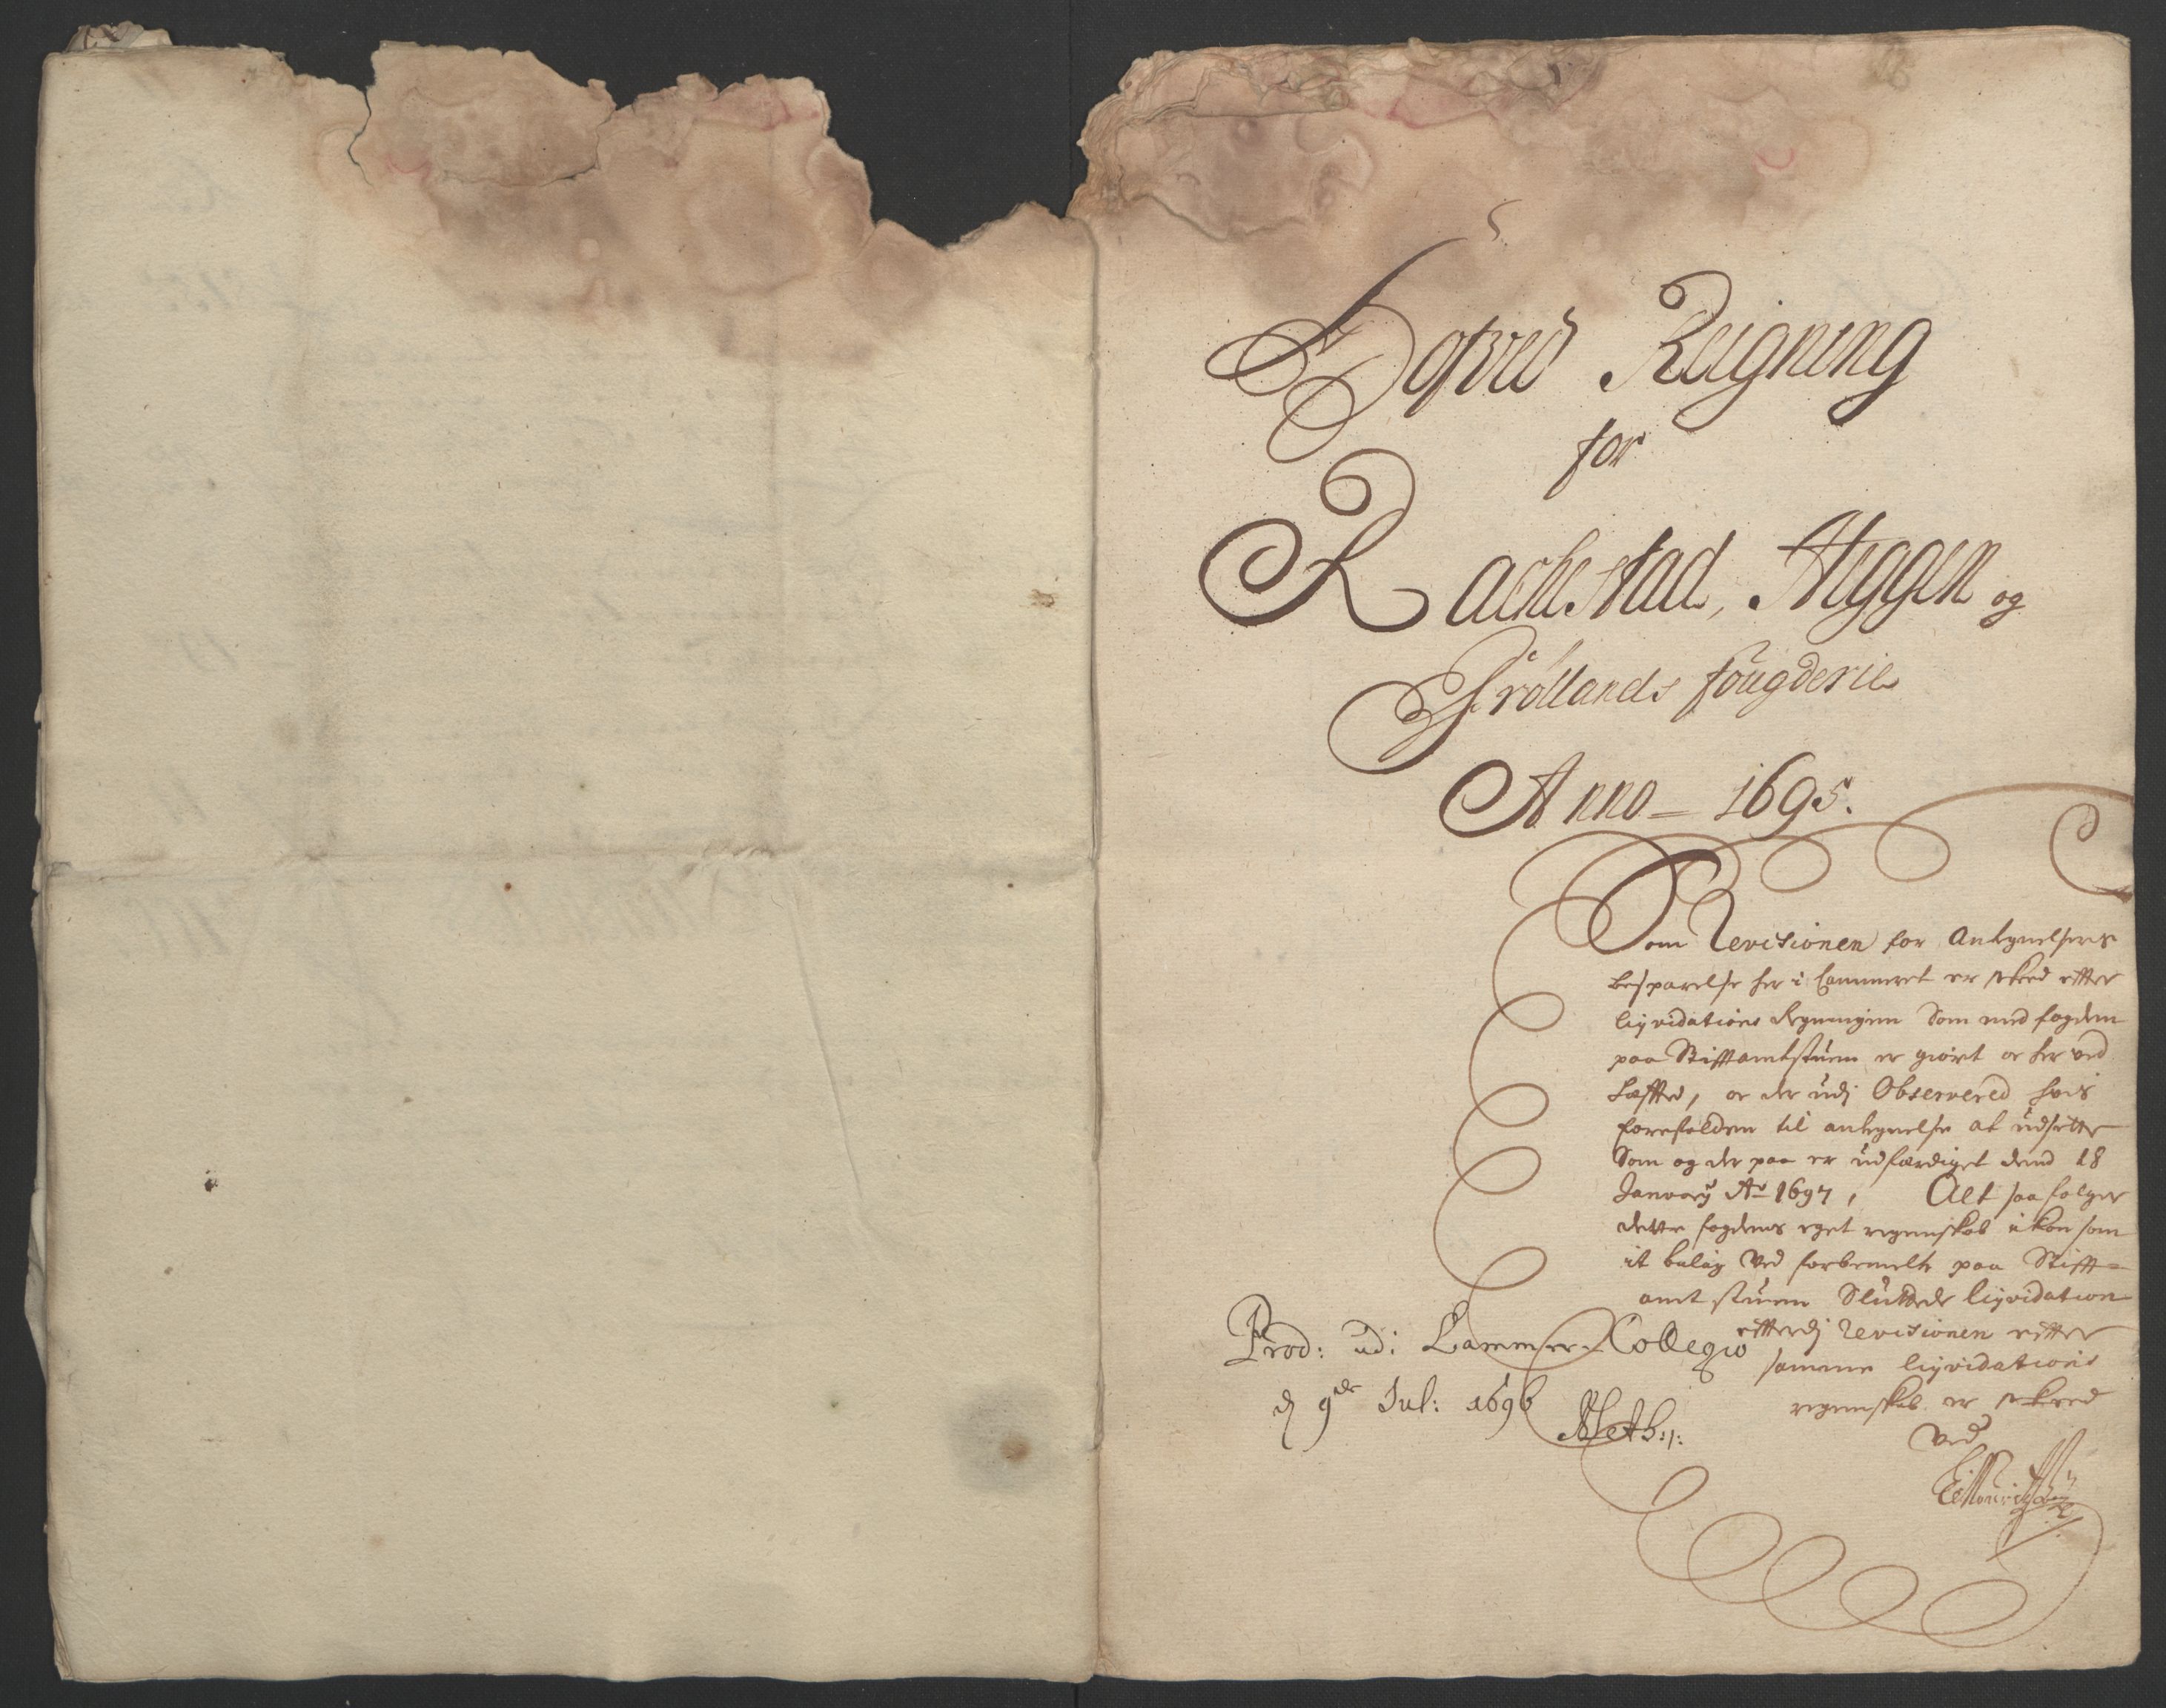 Hofved Reigning
for
Rachestad, Heggen og
Frøllands fougderie
Anno – 1695.
Som Revisionen for Antegnelsers
besparelse her i Cammeret er skeed effter
liqvidations Regningen Som med fogden
paa Stifftamtstuen er giort oc her ved
hefftet, oc der udj Observered hvis
forefalden til antegnelse at udsette
Som og der paa er udferdiget dend 18
Januarij Ao 1697, Alt saa følger
dette fogdens eget regenskab ikon som
it belag ved forbemelte paa Stifft=
amt stuen Sluttede liqvidation
efterdj Revisionen effter
samme liqvidations
regenskab er skeed
Ved
Prod: udi Cammer-Collegio
d 9de Jul: 1696